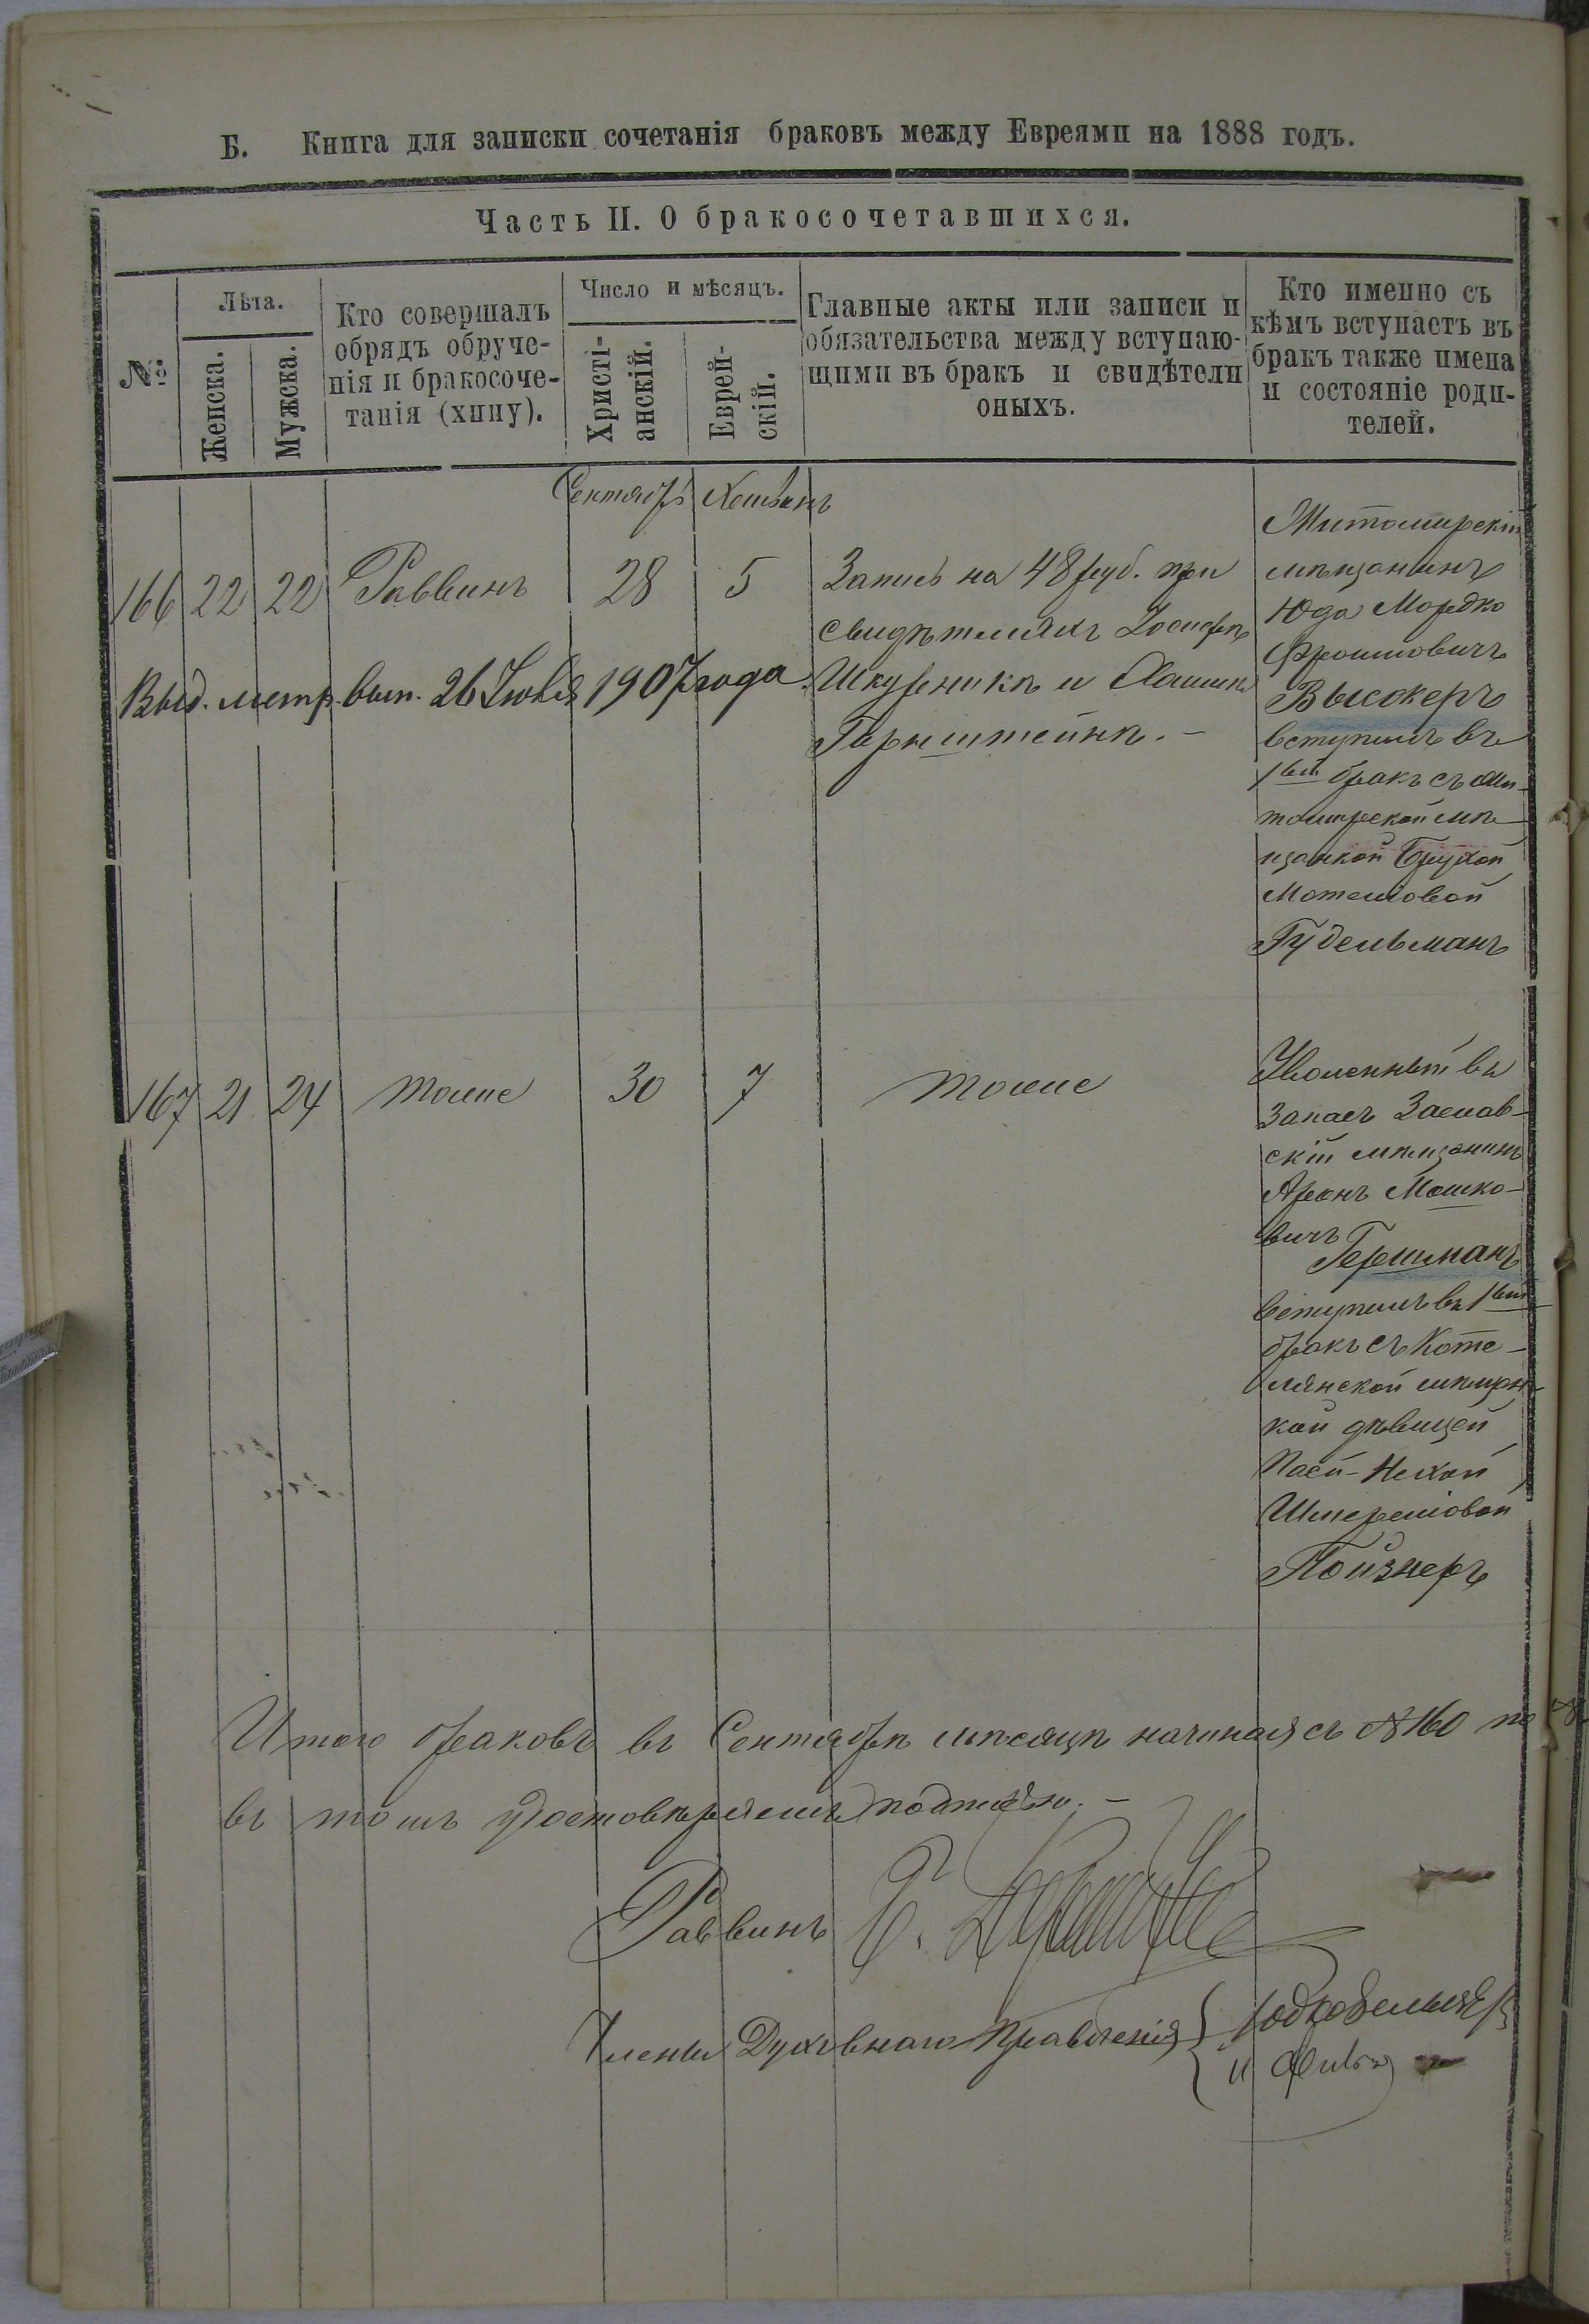 Б. Книга для записки сочетанія браковъ между Евреями на 1888 годъ.
Часть II. О бракосочетавшихся.
№
Лѣта.
Женска.
Мужска.
Кто совершалъ
обрядъ обруче-
нія и бракосоче-
танія (хипу).
Число и мѣсяцъ.
Христі-
анскій.
Еврей-
скій.
Главные акты или записи и
обязательства между вступаю-
щими въ бракъ и свидѣтели
оныхъ.
Кто именно съ
кѣмъ вступаетъ въ
бракъ также имена
и состояніе роди-
телей.
Сентябрь Хешванъ
166 22 22 Раввинъ 28 5
Запись на 48 руб. при
свидѣтеляхъ Іосифѣ
Шкурникѣ и Хаимѣ
Горнштейнѣ. —
Житомирскій
мѣщанинъ
Юда Мордко
Фроимовичъ
Высокеръ
вступилъ въ
1вый бракъ съ Жи-
томирской мѣ-
щанкой Брухой
Мотелиовой
Гудельманъ
Выд. метр. вып. 26 Іюля 1907 года.
167 21 24 тоже 30 7 тоже
Уволенный въ
запасъ Заслав-
скій мѣщанинъ
Аронъ Мошко-
вичъ
Гершманъ
вступилъ въ 1вый
бракъ съ Коте-
лянской мѣщан-
кой дѣвицей
Песей-Нехой
Шмереліовой
Пойзнеръ
Итого браковъ въ Сентябрѣ мѣсяцѣ начиная съ №160 по
въ томъ удостовѣряемъ подписью. —
Раввинъ
Члены Духовнаго Правленія
и